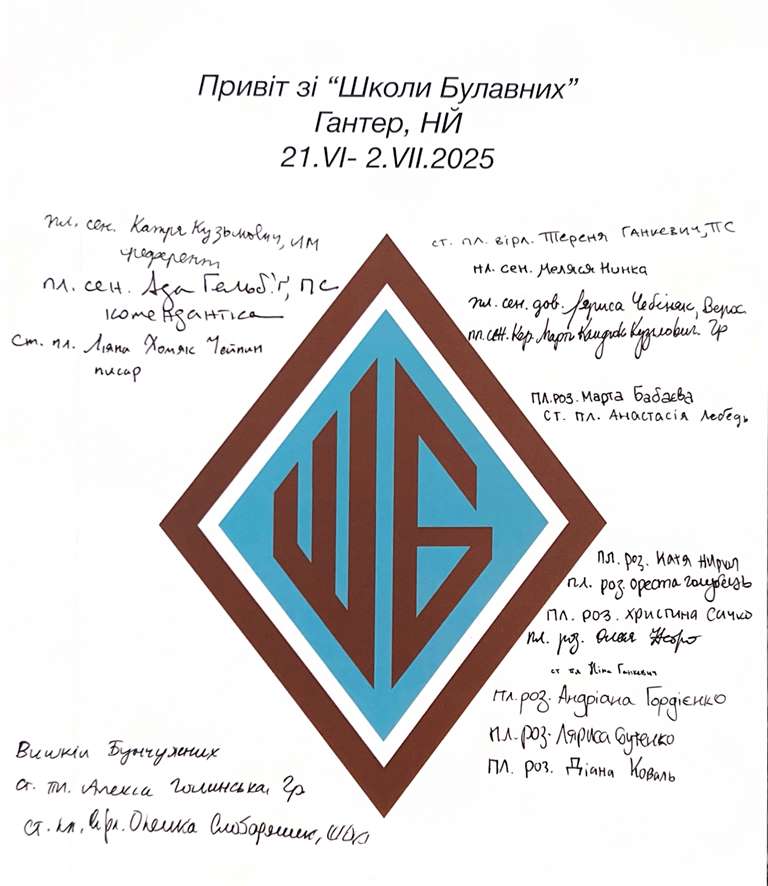 Привіт зі “Школи Булавних”
Гантер, НЙ
21.VI- 2.VII.2025
пл. сен. Катря Кузьмович, ЛМ
референт
пл. сен. Ада Гельбіґ, ПС
комендантка
ст. пл. Ляна Хомяк Чейпин
писар
ст. пл. вірл. Тереня Ганкевич, ПС
пл. сен. Меляся
пл. сен. дов. Лариса Чебіняк, Верос
пл. сен. кер. Марта Кузмович Гр
пл. роз. Марта Бабаєва
ст. пл. Анастасія Лебедь
ШБ
пл. роз. Катя
пл. роз. Ореста Голубець
пл. роз. Христина Сичко
пл. роз.
ст пл Ніна Ганкевич
пл. роз. Андріана Гордієнко
пл. роз. Ляриса Бутенко
пл. роз. Діана Коваль
Вишкіл Бунчужних
ст. пл. Алекса Голинська, Гр
ст. пл. вірл. Оленка Слободяник,